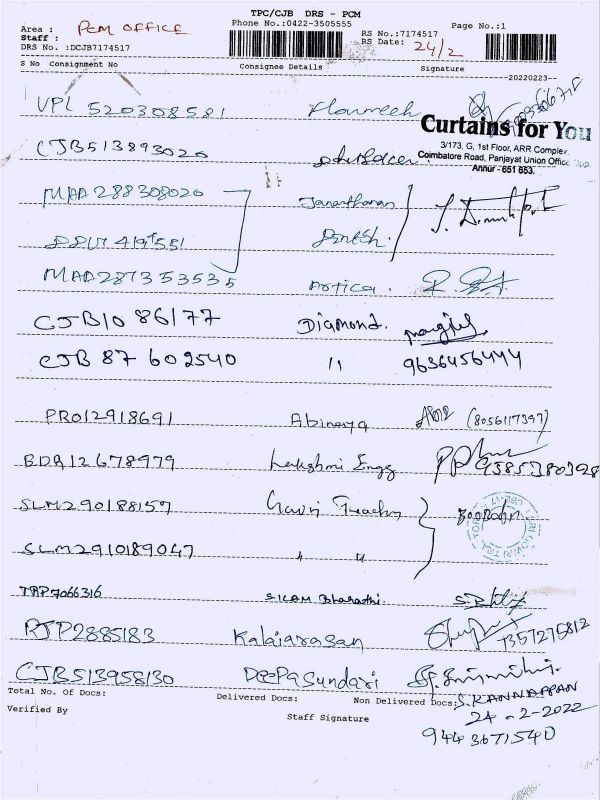 TPC/CJB DRS - PCM
Phone No.:0422-3505555
Page No.:1
Area : PCM OFFICE
Staff :
DRS No. :DCJB7174517
RS No.:7174517
RS Date: 24/2
S No Consignment No Consignee Details Signature
20220223
VPL 520308581
Curtains for You
3/173, G, 1st Floor, ARR Complex,
Coimbatore Road, Panjayat Union Office Opp.
Annur - 651 653.
CJB513893020
MAA288308020 Janarthanan
MAA287353535 Artica.
CJB1086177 Diamond.
CJB 87 602540 11 9636456444
PRO12918691 Abinaya (8056117397)
BDR12678979 Lakshmi Engg 9385380328
SLM290188157
SLM2910189047 " "
TRP7066316 Bharathi
RJP2885183 Kalaiarasan 7357275812
CJB513958130 Deepa Sundari
Total No. Of Docs: Delivered Docs: Non Delivered Docs:
S. KANNAPPAN
Verified By Staff Signature
24-2-2022
9443671540